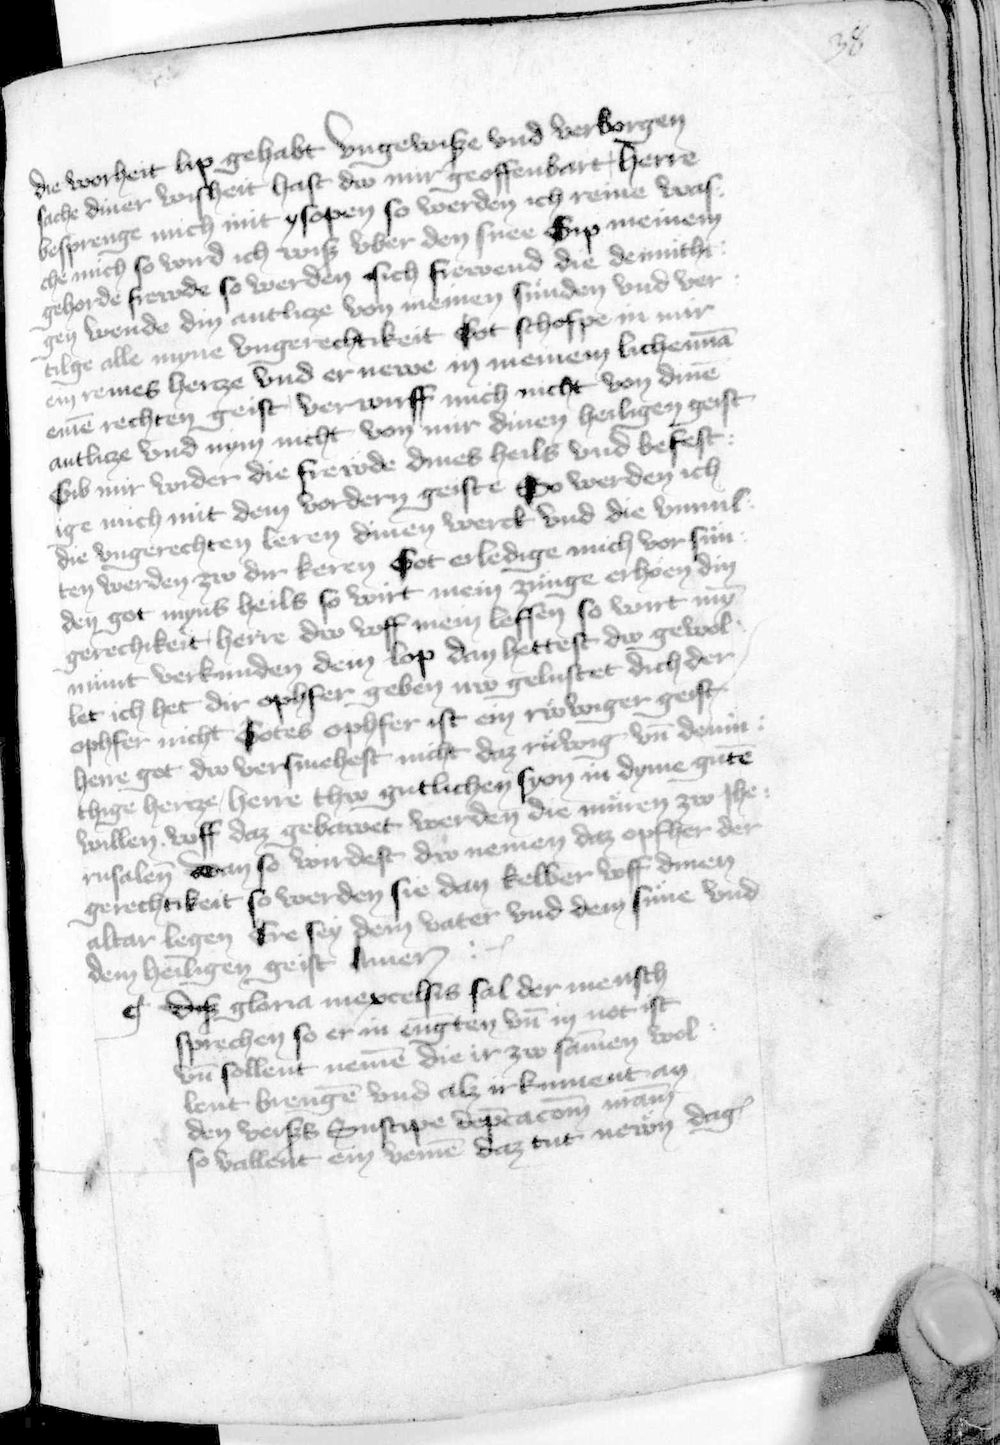 38
die worheit lip gehabt Vngewisze vnd verborgen
sache diner wisheit hast dw mir geoffenbart herre
besprenge mich mit ysopen so werden ich reine was:
che mich so wird ich wisz vber den snee Gip meinem
gehorde frewde so werden sich frewend die demuthi:
gen wende din antlicze von meinen sunden vnd ver:
tilge alle myne vngerechtikeit Got schoffpe in mir
ein reines hercze vnd ernewe in meinem lichennā
einē rechten geist verwirff mich nicht von dinē
antlicze vnd nym nicht von mir dinen heiligen geist
Gib mir wider die frewde dines heils vnd befest:
ige mich mit dem vordern geiste So werden ich
die vngerechten leren dinen werck vnd die vnmil:
ten werden zw dir keren Got erledige mich vor sun:
den got myns heils so wirt mein zunge erhoen din
gerechikeit herre dw voff mein leffsen so wirt my̅
munt verkunden dein lop dan hettest dw gewol:
let ich het dir ophfer geben nw gelustet dich der
ophfer nicht Gotes ophfer ist ein rwwiger geist
herre got dw versmehest nicht daz ruwig vn̄ demu:
thige hercze herre thw gutlichen syon in dyme gutē
willen voff daz gebawet werden die muren zw Jhe:
rusalen Dan so wirdest dw nemen daz opfher der
gerechtikeit so werden sie dan kelber voff dinen
altar legen Ere sey dem vater vnd dem sune vnd
dem heiligen geist Amen :
¶ Disz gloria inexcelsis sal der mensch
sprechen so er in engten vn̄ in not ist
vn̄ sollent nemē die ir zw samen wol:
lent brengē vnd alz ir kument an
den versz Suscipe dep̄cacōm nr̄am
so vallent ein venie daz tut newn dag